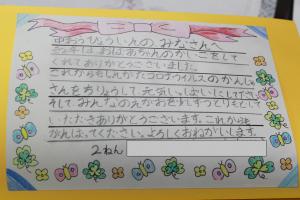 中おうびょういんのみなさんへ
くれてありがとうございました。
これからもしんがたコロナウイルスのかんじゃ
さんをちりょうして、元気いっぱいにしてください。
そして、みんなのえがおを少しずつとりもどして
いただきありがとうございます。これからも
がんばってください。よろしくおねがいします。
2ねん